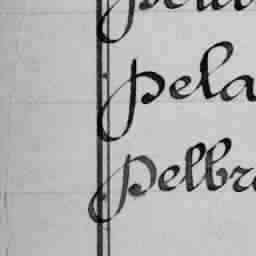 pela
pelbr